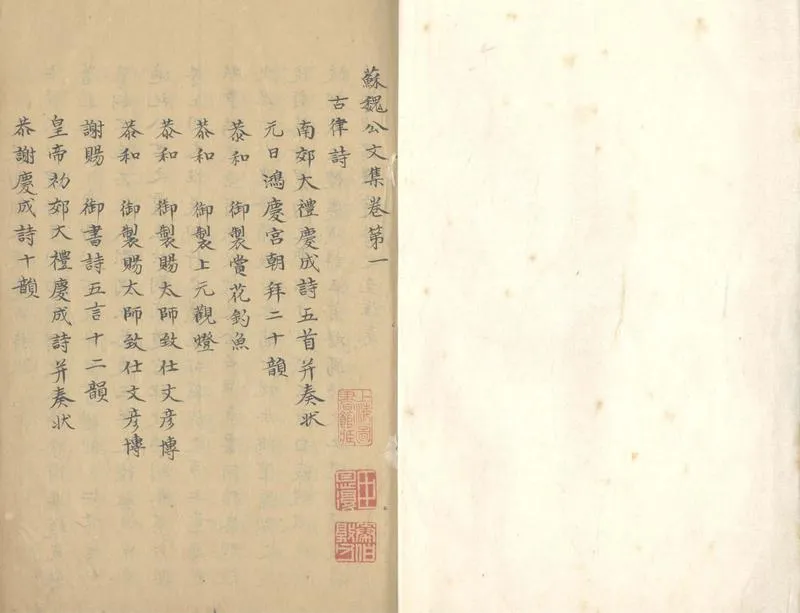 蘇魏公文集卷第一
古律詩
南郊大禮慶成詩五首并奏狀
元日鴻慶宮朝拜二十韻
恭和　御製賞花釣魚
恭和　御製上元觀燈
恭和　御製賜太師致仕文彥博
恭和　御製賜太師致仕文彥博
謝賜　御書詩五言十二韻
皇帝初郊大禮慶成詩并奏狀
恭謝慶成詩十韻
上海圖書館藏